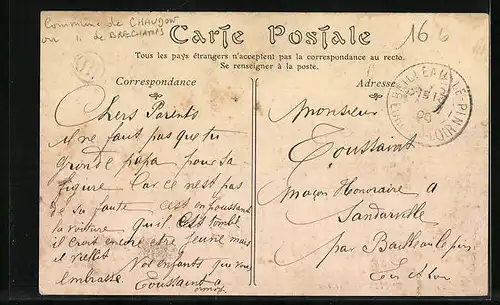 Commune de CHAUDON
ou " de BRÉCHAMPS
16 b
Carte Postale
Tous les pays étrangers n'acceptent pas la correspondance au recto.
Se renseigner à la poste.
Correspondance
Adresse
BAILLEAU-LE-PIN
Chers Parents
il ne faut pas que tu
gronde papa pour sa
figure Car ce nest pas
de sa faute cest en poussant
la voiture quil est tombé
il croit encore etre jeune mais
il
Vos enfants qui vous
embrasse. Toussaint
Monsieur
Toussaint
maçon Honoraire a
Sandarville
par Bailleau le pin
Eu et Loir